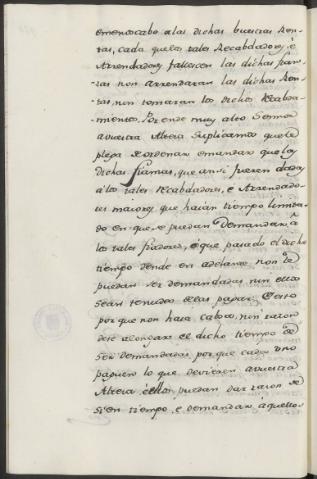 emenoscabo alas dichas buestras Ren-
tas, cada quelos tales Recabdadores, é
Arrendadores fallescen las dichas fian-
zas non arrendaran las dichas Ren-
tas, non tomaran los dichos Recabda-
mientos, Por ende muy alto Sennor
avuestra Alteza Suplicamos que le
plega de ordenar emandar que las
dichas fianzas, que ansi fueren dadas
á los tales Recabdadores, é Arrendado-
res maiores, que haian tiempo limita-
do en que se puedan Demandar á
los tales fiadores, é que pasado el dicho
tiempo dende en adelante non le
puedan ser demandadas nin ellos
sean tenudos delas pagar. E esto
por que non haia cabtos, non razon
de se alongar el dicho tiempo de
ser demandadas, por que cada uno
pague lo que devieren avuestra
Alteza é ellos puedan dar razon de
si en tiempo, e demandar, á aquellos